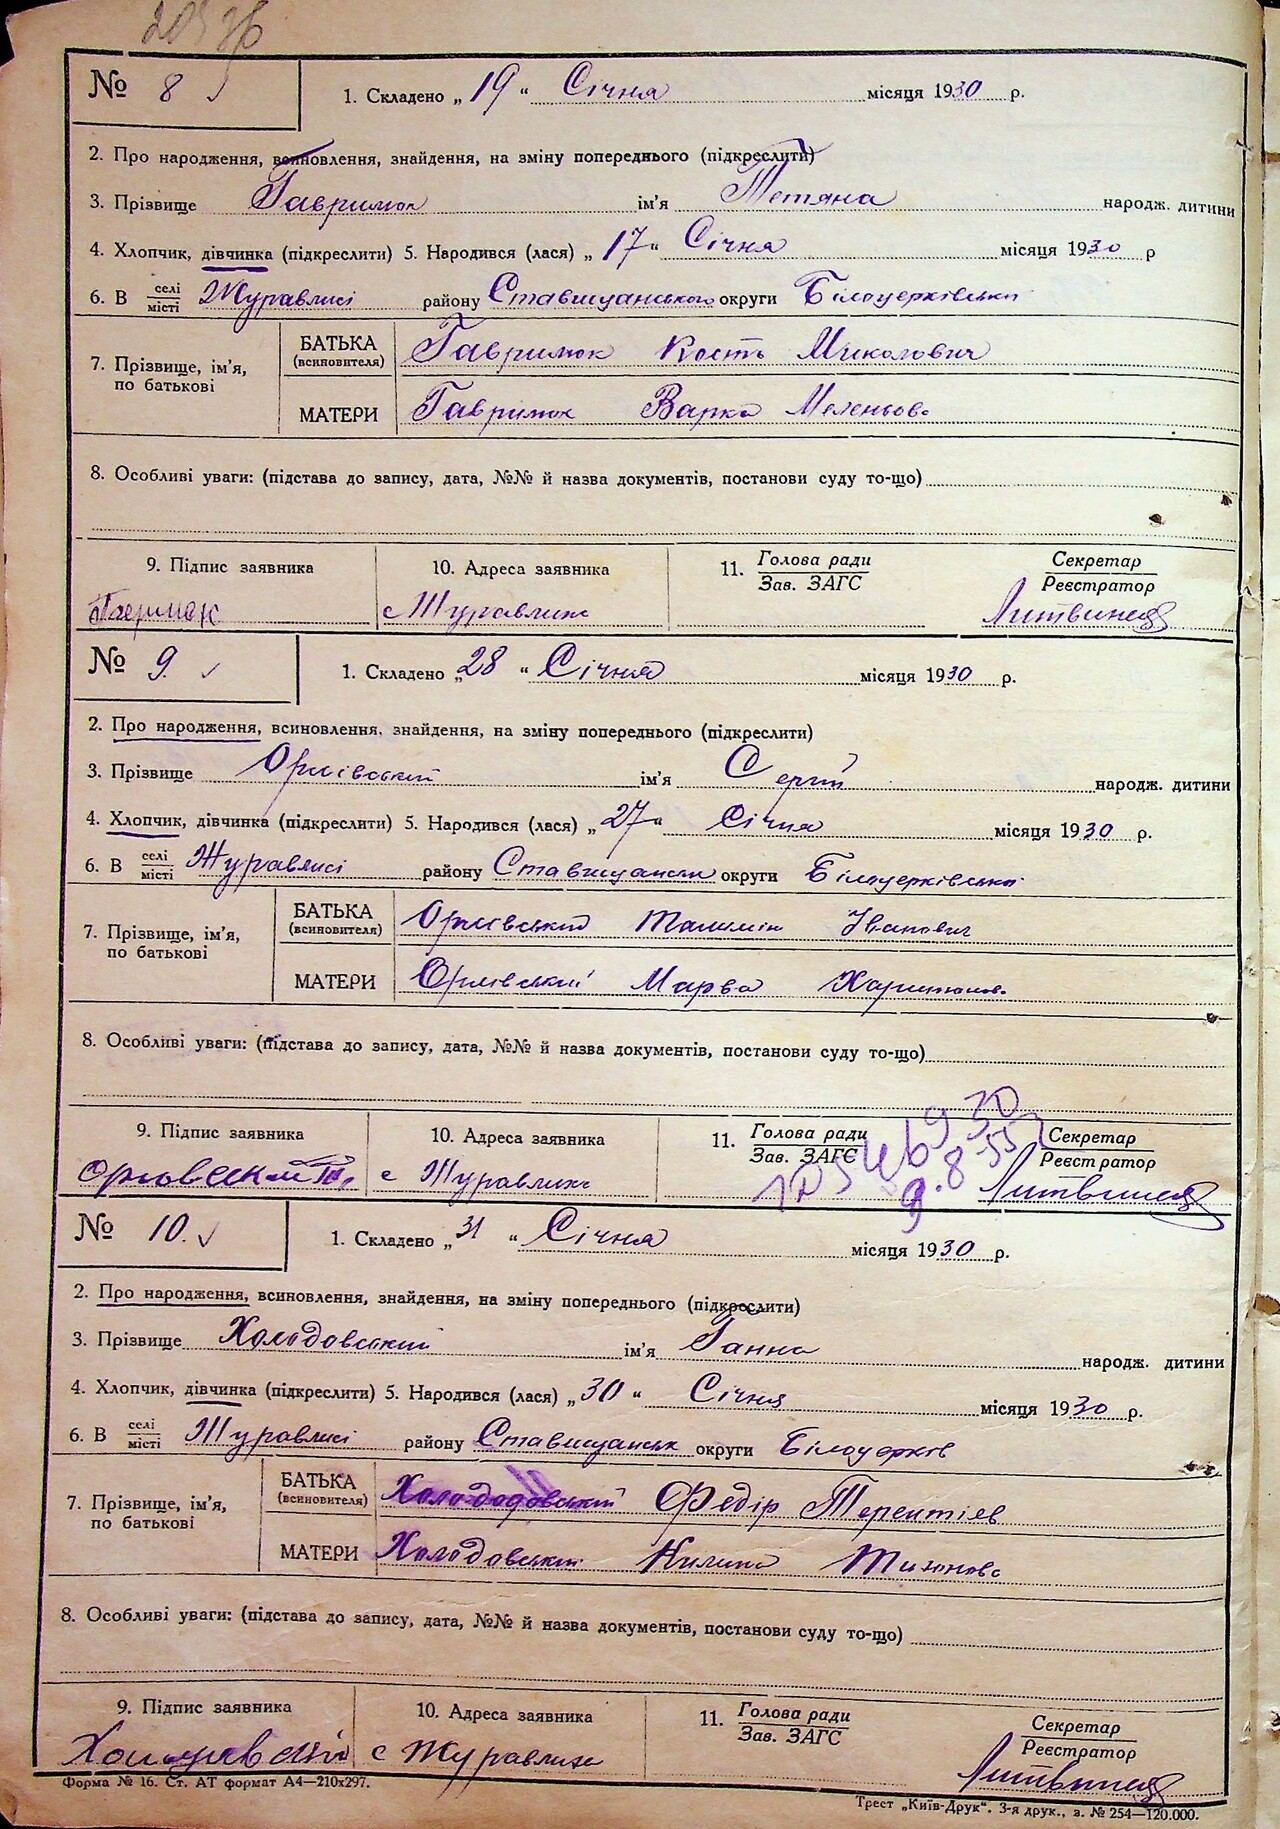 № 8
1. Складено „ 19 “ Січня місяця 1930 р.
2. Про народження, всиновлення, знайдення, на зміну попереднього (підкреслити)
3. Прізвище Гавримок ім'я Тетяна народж. дитини
4. Хлопчик, дівчинка (підкреслити) 5. Народився (лася) „ 17 “ Січня місяця 1930 р
6. В селі місті Журавлисі району Ставищанського округи Білоцерківська
7. Прізвище, ім'я, по батькові
БАТЬКА (всиновителя) Гавримок Кость Миколович
МАТЕРИ Гавримок Варка
8. Особливі уваги: (підстава до запису, дата, №№ й назва документів, постанови суду то-що)
9. Підпис заявника 10. Адреса заявника 11. Голова ради Зав. ЗАГС Секретар Реєстратор
с Журавлиха
№ 9.
1. Складено „ 28 “ Січня місяця 1930 р.
2. Про народження, всиновлення, знайдення, на зміну попереднього (підкреслити)
3. Прізвище Орлівський ім'я Сергій народж. дитини
4. Хлопчик, дівчинка (підкреслити) 5. Народився (лася) „ 27 “ Січня місяця 1930 р.
6. В селі місті Журавлисі району Ставищанськ округи Білоцерківської
7. Прізвище, ім'я, по батькові
БАТЬКА (всиновителя) Орлівський Іванович
МАТЕРИ Орлівський Марва Харитонов.
8. Особливі уваги: (підстава до запису, дата, №№ й назва документів, постанови суду то-що)
9. Підпис заявника 10. Адреса заявника 11. Голова ради Зав. ЗАГС Секретар Реєстратор
с Журавлиха
9.8.55
№ 10.
1. Складено „ 31 “ Січня місяця 1930 р.
2. Про народження, всиновлення, знайдення, на зміну попереднього (підкреслити)
3. Прізвище Холодовський ім'я Ганна народж. дитини
4. Хлопчик, дівчинка (підкреслити) 5. Народився (лася) „ 30 “ Січня місяця 1930 р.
6. В селі місті Журавлисі району Ставищанськ округи Білоцерків
7. Прізвище, ім'я, по батькові
БАТЬКА (всиновителя) Федір Терентіев
МАТЕРИ Холодовський Килина Тихонова
8. Особливі уваги: (підстава до запису, дата, №№ й назва документів, постанови суду то-що)
9. Підпис заявника 10. Адреса заявника 11. Голова ради Зав. ЗАГС Секретар Реєстратор
с Журавлиха
Форма № 16. Ст. АТ формат А4—210х297.
Трест „Київ-Друк“. 3-я друк., з. № 254—120.000.